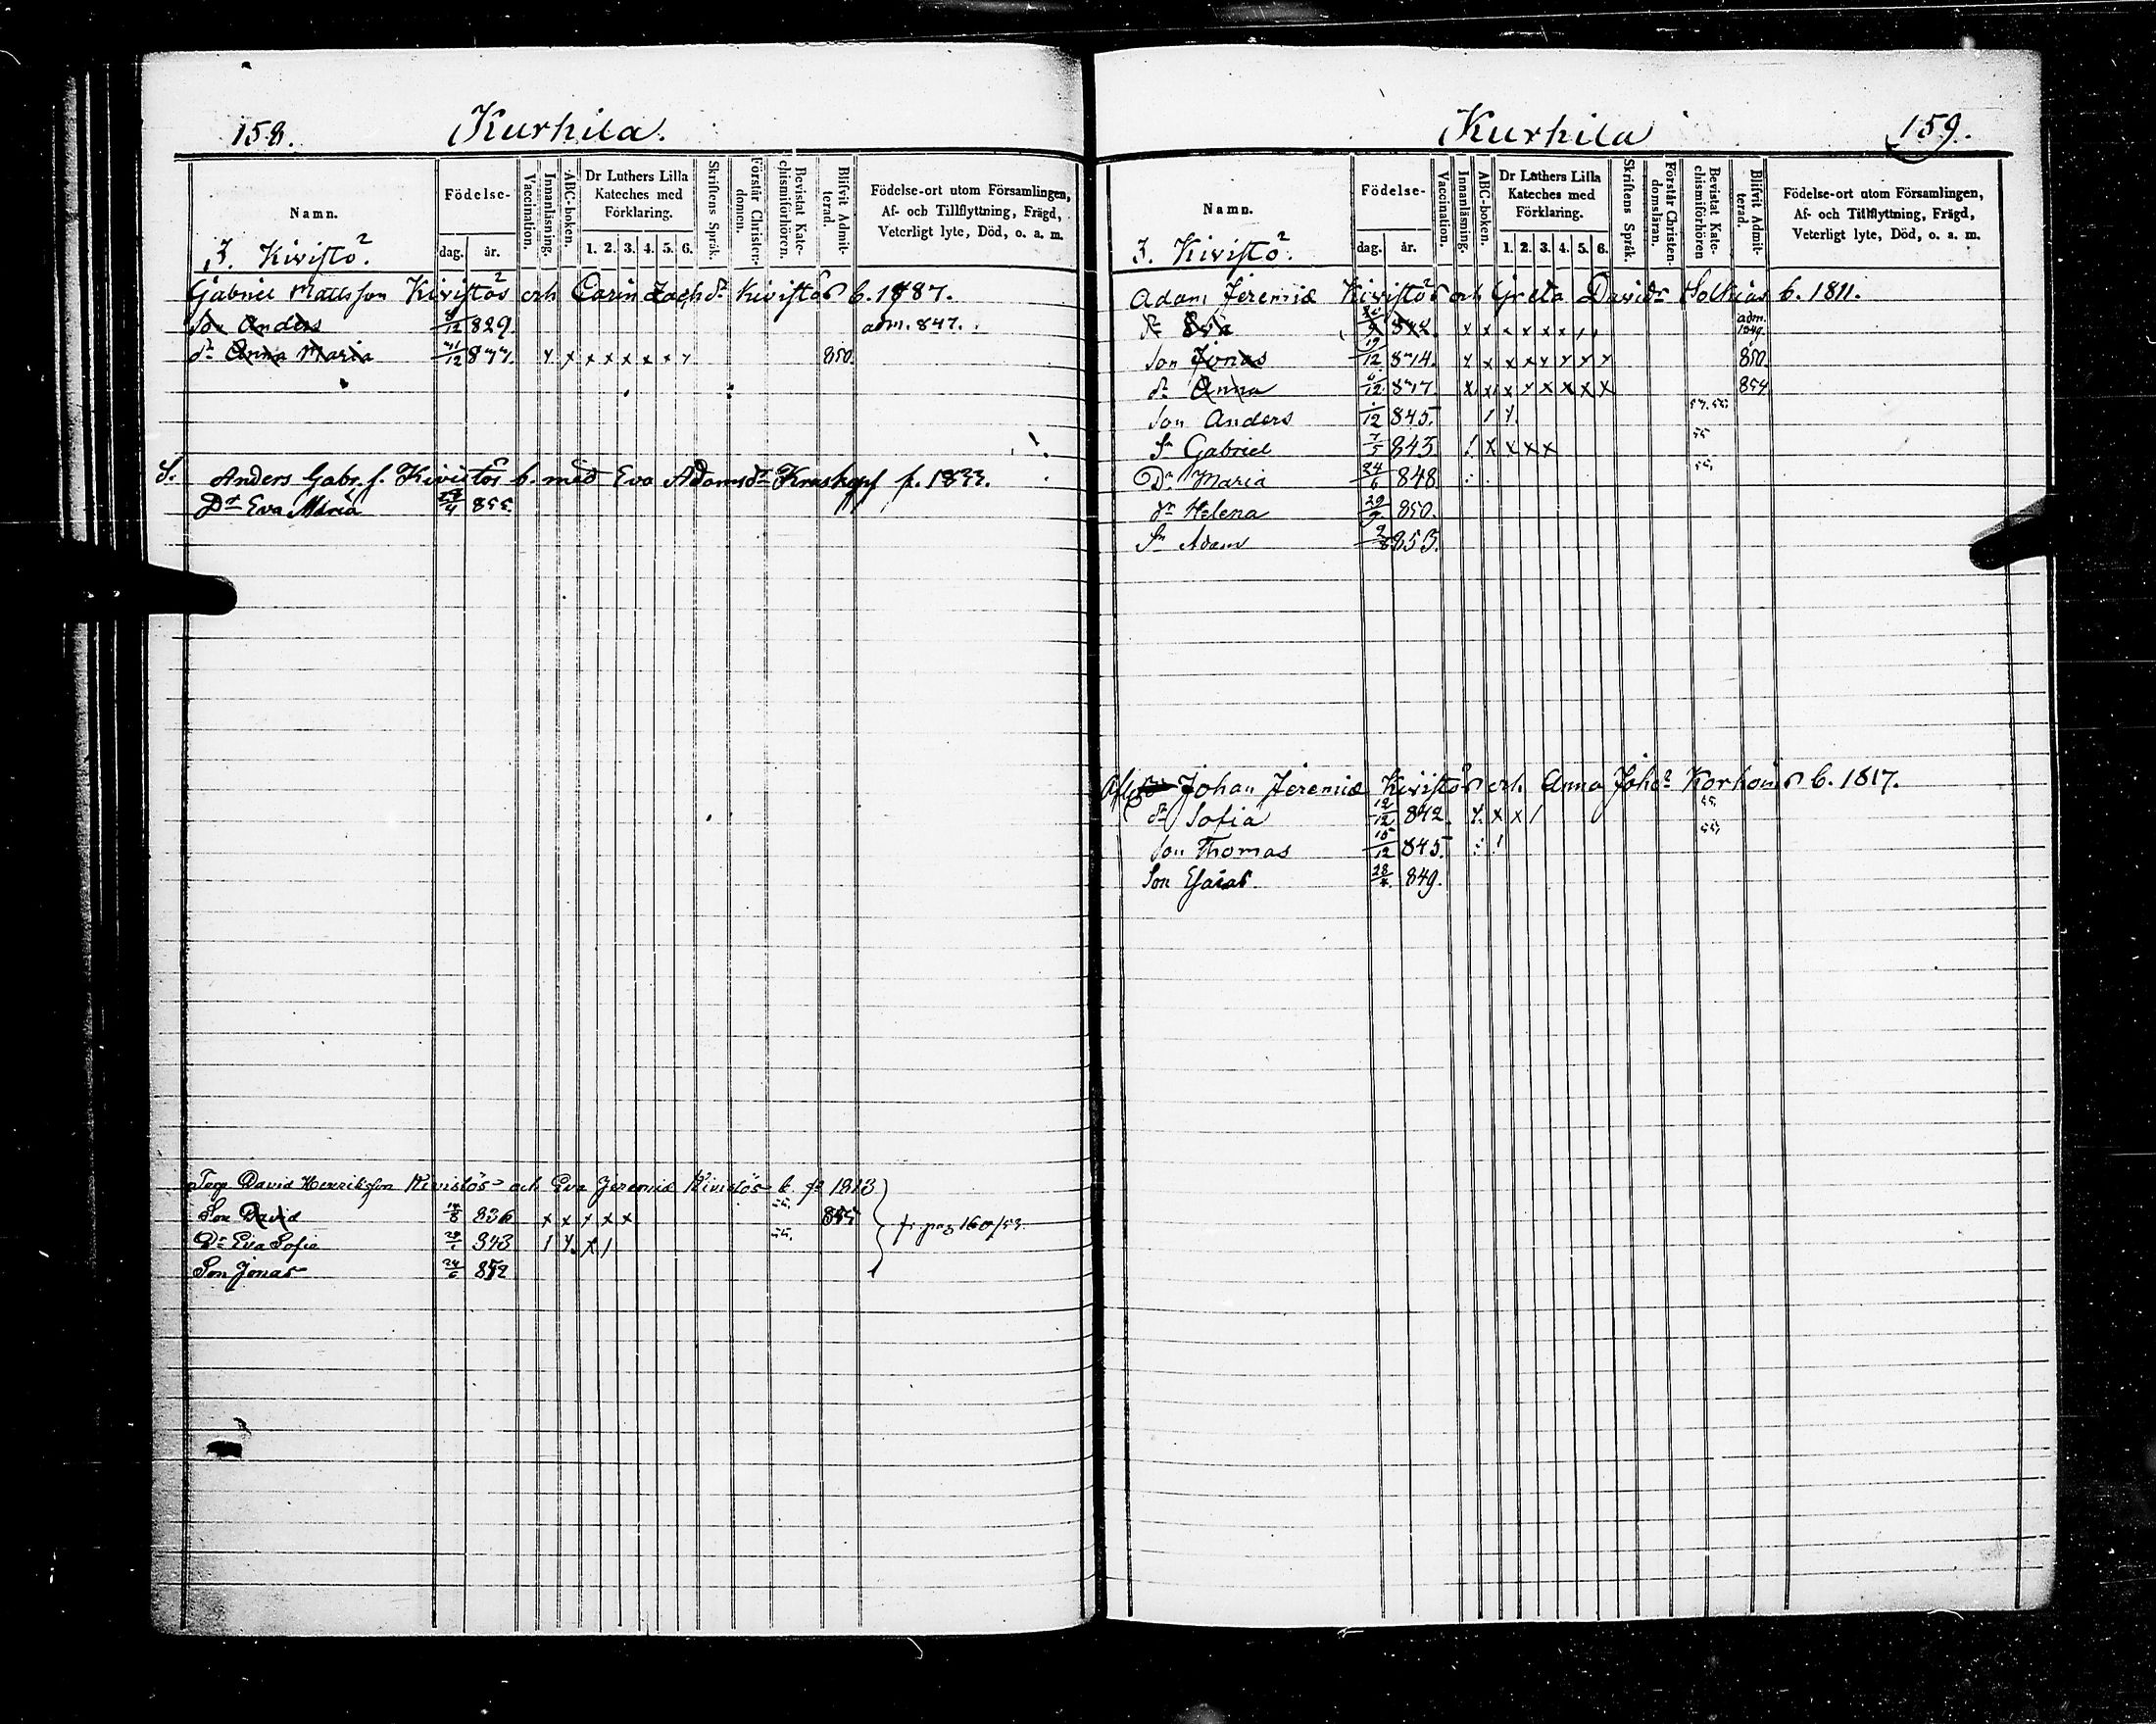 158. Kurhila.
Namn. Födelse- Vaccination. Innanläsning. ABC-boken. Dr Luthers Lilla Kateches med Förklaring. Skriftens Språk. Förstår Christendomen. Bevistat Katechismiförhören. Blifvit Admitterad. Födelse-ort utom Församlingen, Af- och Tillflyttning, Frägd, Veterligt lyte, Död, o. a. m.
dag. år. 1. 2. 3. 4. 5. 6.
3. Kivistö.
Gabriel Mattsson Kivistös och Carin Zach.dr Kivistös b. 1787.
Son Anders 8/12 829 adm. 847.
dr Anna Maria /12 8 x x x x x x x x 850.
S. Anders Gabr. s. Kivistös b. med Eva Adamsdr f. 1833.
Dr Eva Maria /4 855.
Torp David Henriksson Kivistös och Eva Jeremiæ Kivistös b. 1813
Son David /8 836 x x x x x 55. 855
Dr Eva Sofia 843 55. fr. pag 160/53.
Son Jonas 24/6 852
Kurhila 159.
Namn. Födelse- Vaccination. Innanläsning. ABC-boken. Dr Luthers Lilla Kateches med Förklaring. Skriftens Språk. Förstår Christendomsläran. Bevistat Katechismiförhören Blifvit Admitterad. Födelse-ort utom Församlingen, Af- och Tillflyttning, Frägd, Veterligt lyte, Död, o. a. m.
dag. år. 1. 2. 3. 4. 5. 6.
3. Kivistö.
Adam Jeremiæ Kivistös och Greta Davidsdr Solkias b. 1811.
dr Eva adm. 1849.
Son Jonas 19/12 8 850.
dr Anna /12 8 854
Son Anders /12 845.
Sn Gabriel 7/5 843 55
Dr Maria 24/6 848 55.
dr Helena 850.
Sn Adam 2/8 853.
Johan Jeremiæ Kivistös och Anna Joh.dr b. 1817.
dr Sofia 12/12 842. x x x / 55.
Son Thomas 15/12 845. 55.
Son Esaias 849.